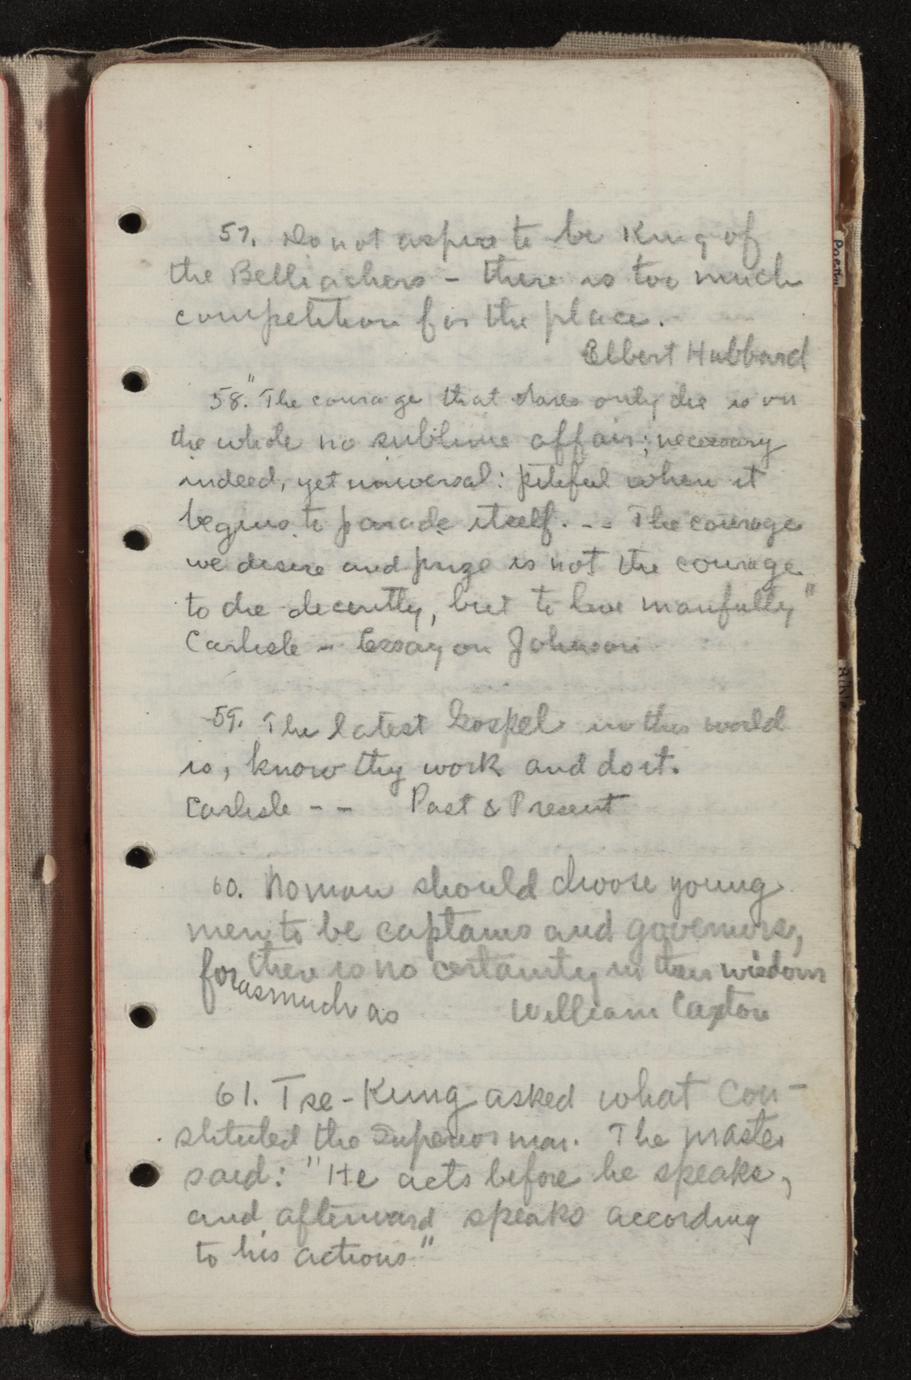 57. Do not aspire to be King of
the Belliachers – there is too much
competition for the place.
Elbert Hubbard
58. "The courage that dares only die is on
the whole no sublime affair; necessary
indeed, yet universal: pitiful when it
begins to parade itself. -- The courage
we desire and prize is not the courage
to die decently, but to live manfully"
Carlisle – Essay on Johnson
59. The latest Gospel in this world
is, know thy work and do it.
Carlisle -- Past & Present
60. No man should choose young
men to be captains and governors,
for there is no certainty in their wisdom
forasmuch as William Caxton
61. Tse-Kung asked what con-
stituted the Superior man. The master
said: "He acts before he speaks,
and afterward speaks according
to his actions"
Poetry